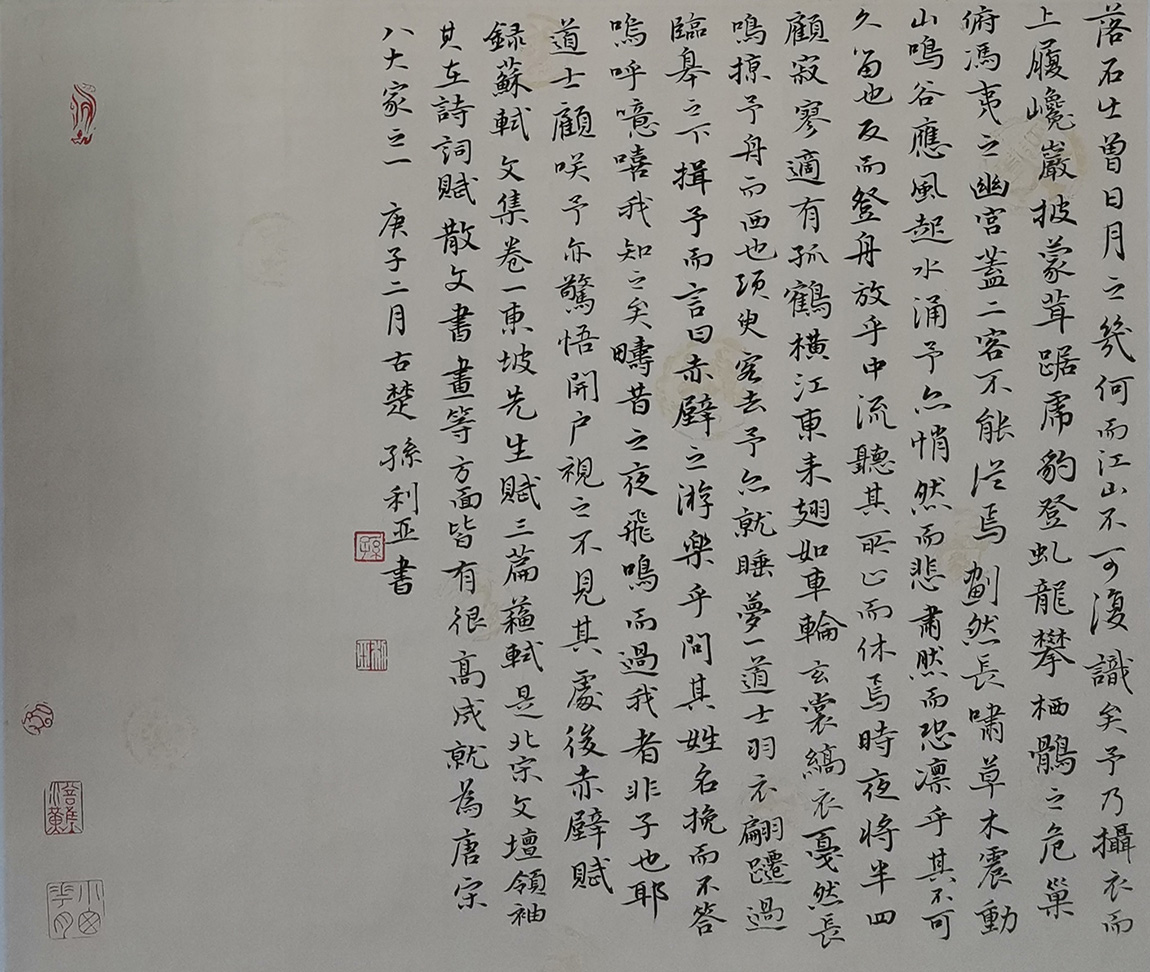 落石出曾日月之幾何而江山不可復識矣予乃攝衣而
上履巉巖披蒙茸踞虎豹登虬龍攀栖鶻之危巢
俯馮夷之幽宫蓋二客不能從焉劃然長嘯草木震動
山鳴谷應風起水涌予亦悄然而悲肅然而恐凛乎其不可
久留也反而登舟放乎中流聽其所止而休焉時夜将半四
顧寂寥適有孤鶴横江東来翅如車輪玄裳縞衣戛然長
鳴掠予舟而西也須臾客去予亦就睡夢一道士羽衣翩躚過
臨皋之下揖予而言曰赤壁之游樂乎問其姓名挽而不答
嗚呼噫嘻我知之矣疇昔之夜飛鳴而過我者非子也耶
道士顧咲予亦驚悟開户視之不見其處後赤壁賦
録蘇軾文集卷一東坡先生賦三篇蘓軾是北宗文壇領袖
其在詩詞賦散文書畫等方面皆有很髙成就為唐宗
八大家之一 庚子二月古楚孫利亚書
孫